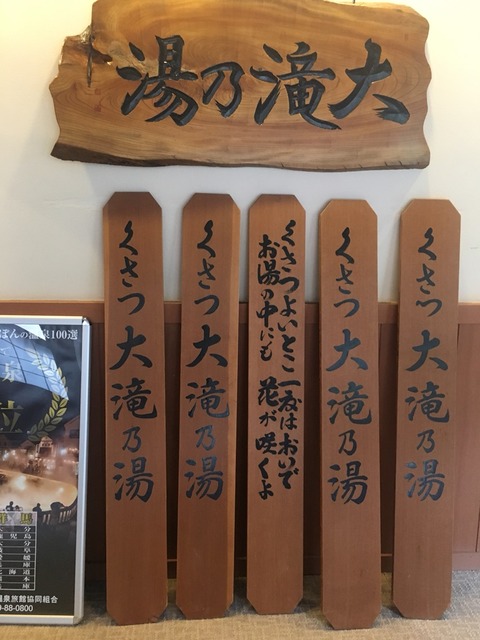 大滝乃湯
くさつ大滝乃湯
くさつ大滝乃湯
くさつよいとこ一度はおいで
お湯の中にも花が咲くよ
くさつ大滝乃湯
くさつ大滝乃湯
ぽんの温泉100選
位
分
児島
分
阜
媛
庫
道
本
庫
温泉旅館協同組合
9-88-0800